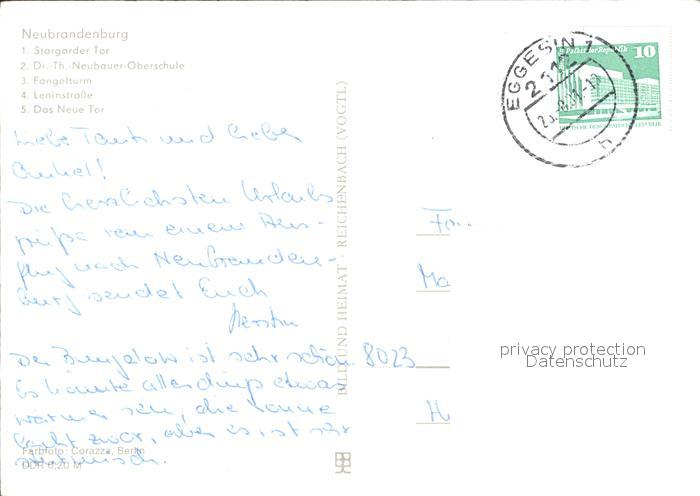 Neubrandenburg
1. Stargarder Tor
2. Dr.-Th.-Neubauer-Oberschule
3. Fangelturm
4. Leninstraße
5. Das Neue Tor
Liebe Tante und lieber
Onkel!
Die herzlichsten Urlaubs-
grüße von einem Aus-
flug nach Neubranden-
burg sendet Euch
Kerstin
Der Bungalow ist sehr schön.
Es könnte allerdings etwas
wärmer sein, die Sonne
lacht zwar, aber es ist sehr
stürmisch.
Farbfoto: Corazza, Berlin
DDR 0,20 M
BILD UND HEIMAT · REICHENBACH (VOGTL)
EGGESIN 1
Palast der Republik
10
DEUTSCHE DEMOKRATISCHE REPUBLIK
h
Fam.
Ma
8023
H
privacy protection
Datenschutz